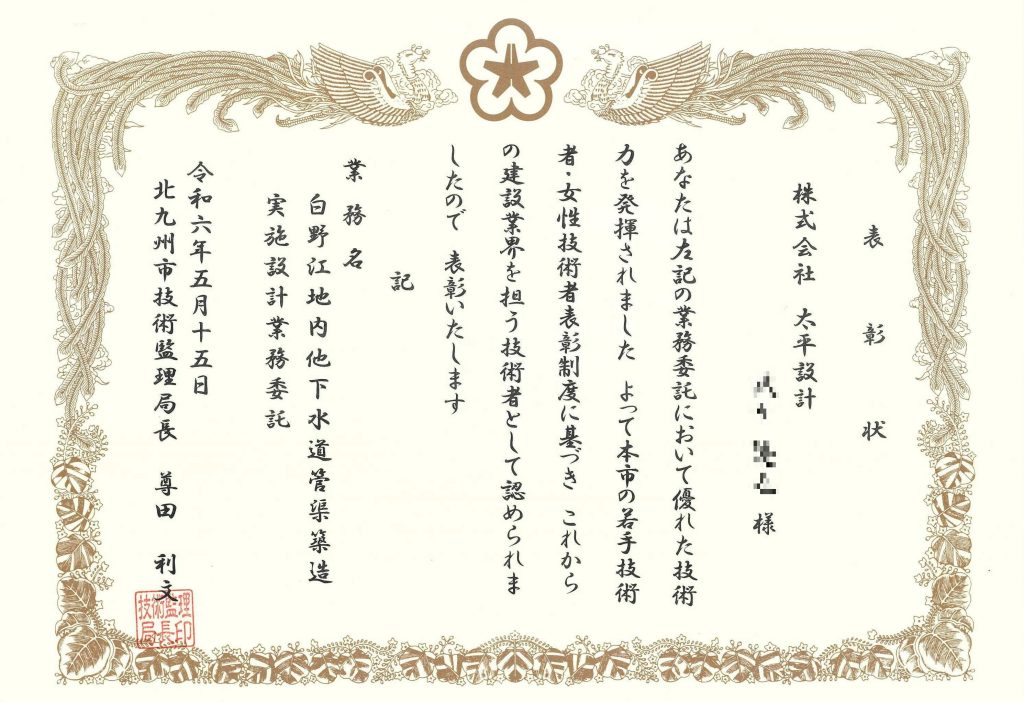 表彰状
株式会社 太平設計
様
あなたは左記の業務委託において優れた技術
力を発揮されました よって本市の若手技術
者・女性技術者表彰制度に基づき これから
の建設業界を担う技術者として認められま
したので 表彰いたします
記
業務名
白野江地内他下水道管渠築造
実施設計業務委託
令和六年五月十五日
北九州市技術監理局長 尊田 利文
技術監理
局長印